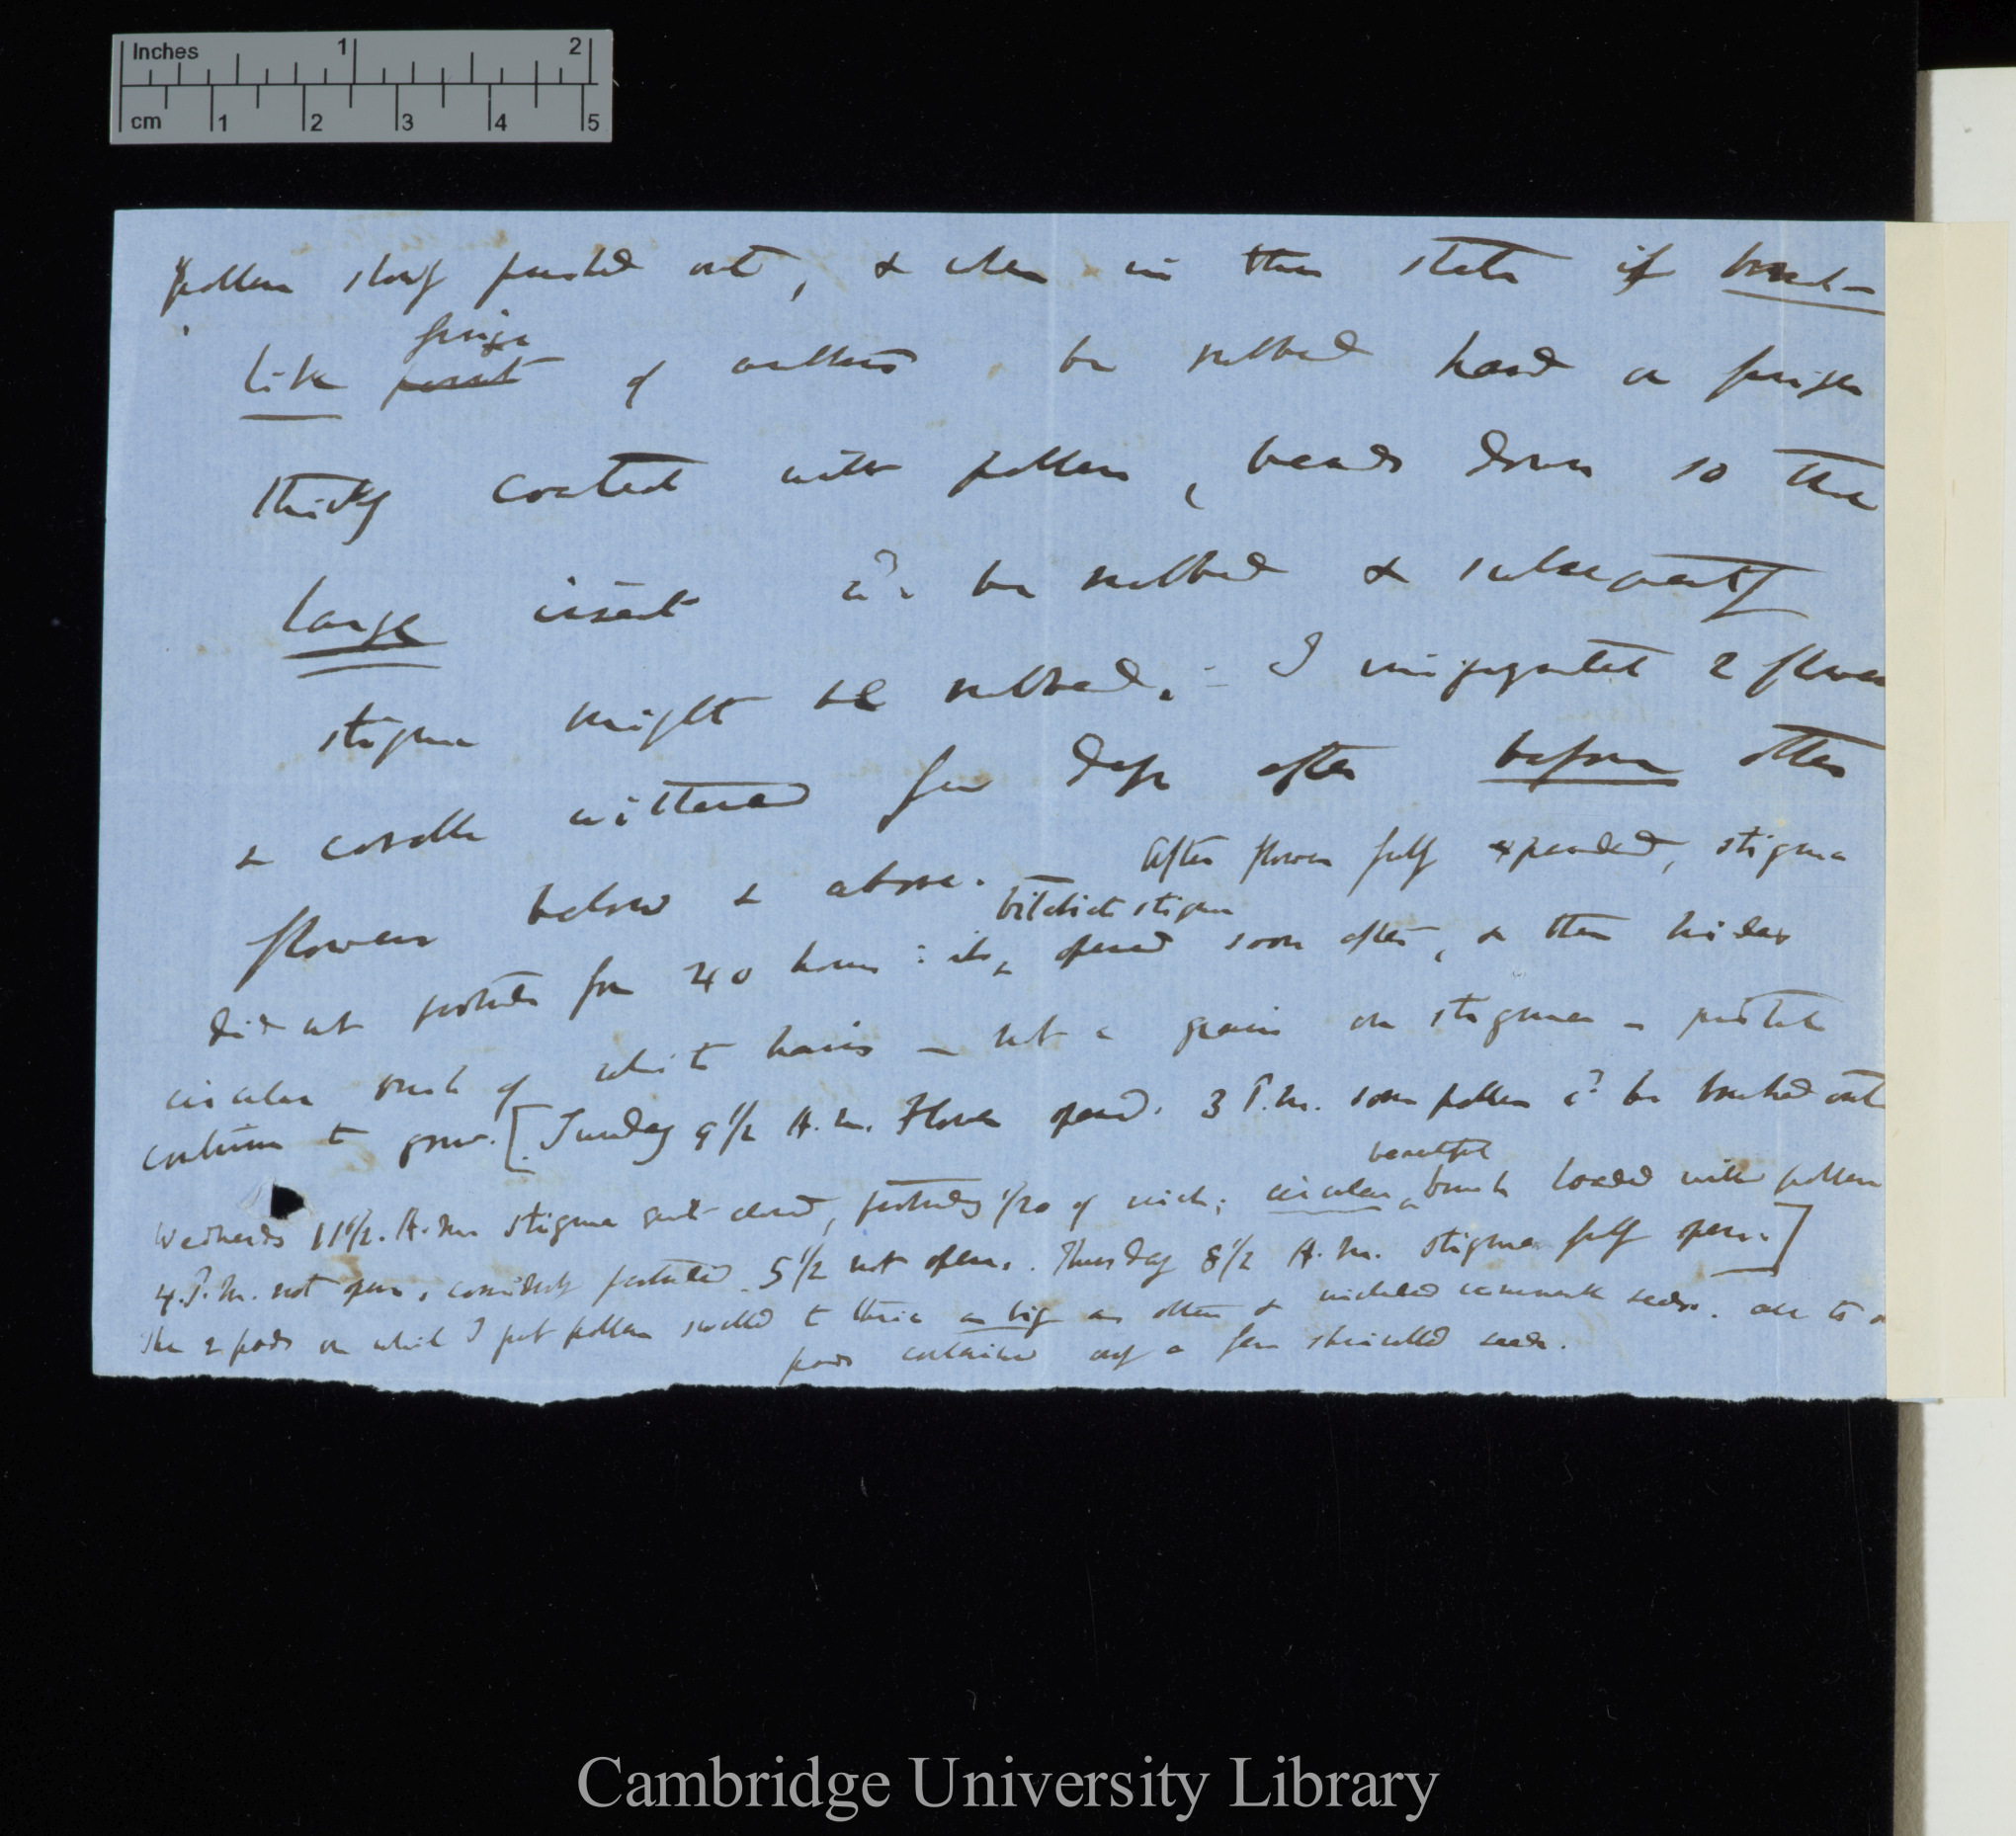 Inches 1 2
cm 1 2 3 4 5
pollen slowly pushed out, & when in this state if brush-
like fringe of anthers be rubbed hard a fringe
thickly coated with pollen, bends down so that
large insect wd. be rubbed & subsequently
stigma might be rubbed. — I impregnated 2 flowers
& corolla withered few days after before other
flowers below & above. After flower fully expanded, stigma
did not protrude for 40 hours: its bilobed stigma opened soon after, & then hides
circular brush of white hairs — not a grain on stigma — pistil
continues to grow. [Tuesday 9 1/2 A.m. Flower opened. 3 P.m. some pollen cd be brushed out
Wednesday 11 1/2. A.m. stigma quite closed, protruding 1/20 of inch; circular beautiful brush loaded with pollen
4. P.m. not open, considerably protruded 5 1/2 not open. Thursday 8 1/2 A.m. stigma fully open.]
The 2 pods on which I put pollen swelled to thrice as big as others & included seeds. all
pods contained only a few shrivelled seeds.
Cambridge University Library